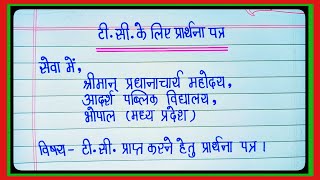 टी.सी.के लिए प्रार्थना पत्र
सेवा में,
श्रीमान् प्रधानाचार्य महोदय,
आदर्श पब्लिक विद्यालय,
भोपाल (मध्य प्रदेश)
विषय- टी.सी. प्राप्त करने हेतु प्रार्थना पत्र।